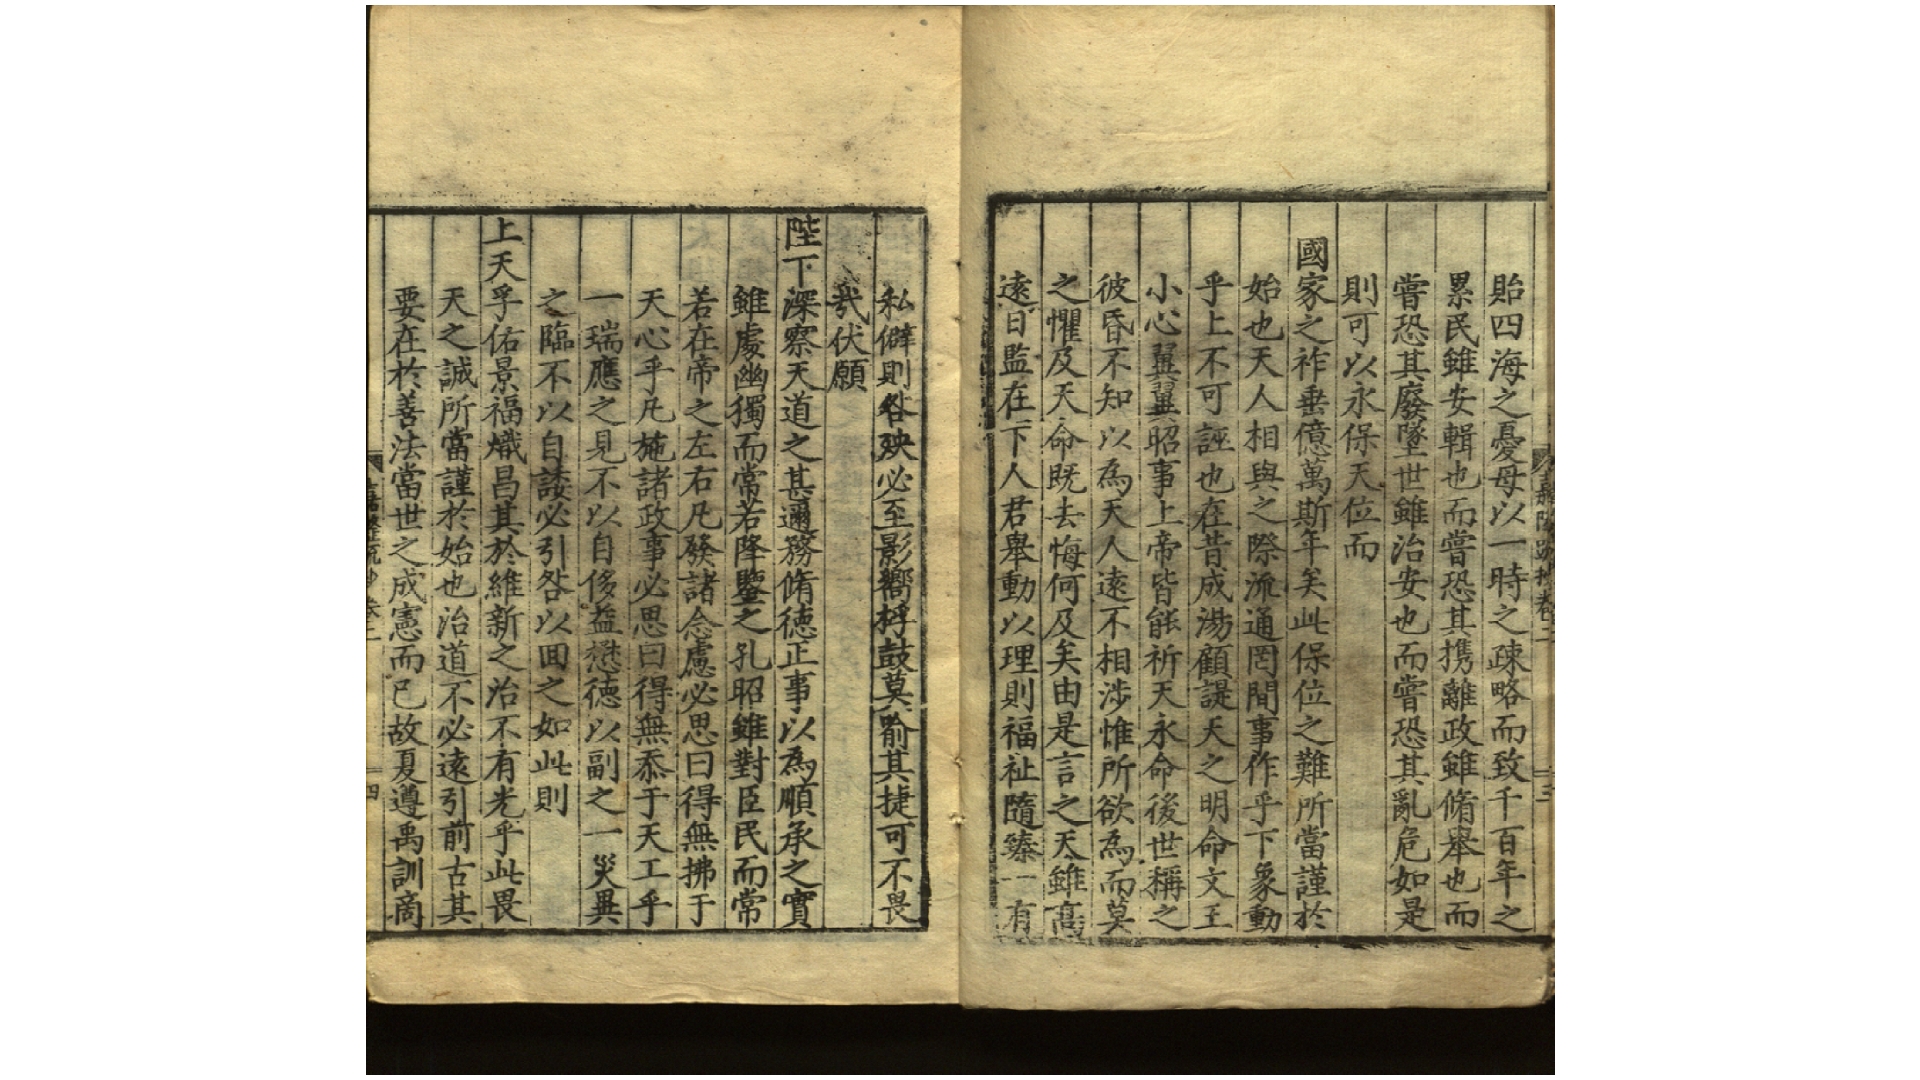 貽四海之憂母以一時之疎略而致千百年之
累民雖安輯也而嘗恐其携離政雖脩舉也而
嘗恐其廢墜世雖治安也而嘗恐其亂危如是
則可以永保天位而
國家之祚垂億萬斯年矣此保位之難所當謹於
始也天人相與之際流通罔間事作乎下象動
乎上不可誣也在昔成湯顧諟天之明命文王
小心翼翼昭事上帝皆能祈天永命後世稱之
彼昏不知以為天人遠不相涉惟所欲為而莫
之懼及天命既去悔何及矣由是言之天雖高
遠日監在下人君舉動以理則福祉隨臻一有
私僻則咎殃必至影嚮桴鼓莫喻其捷可不畏
㢤伏願
陛下深察天道之甚邇務脩德正事以為順承之實
雖處幽獨而常若降鑒之孔昭雖對臣民而常
若在帝之左右凡發諸念慮必思曰得無拂于
天心乎凡施諸政事必思曰得無忝于天工乎
一瑞應之見不以自侈益懋德以副之一災異
之臨不以自諉必引咎以回之如此則
上天孚佑景福熾昌其於維新之治不有光乎此畏
天之誠所當謹於始也治道不必遠引前古其
要在於善法當世之成憲而已故夏遵禹訓商